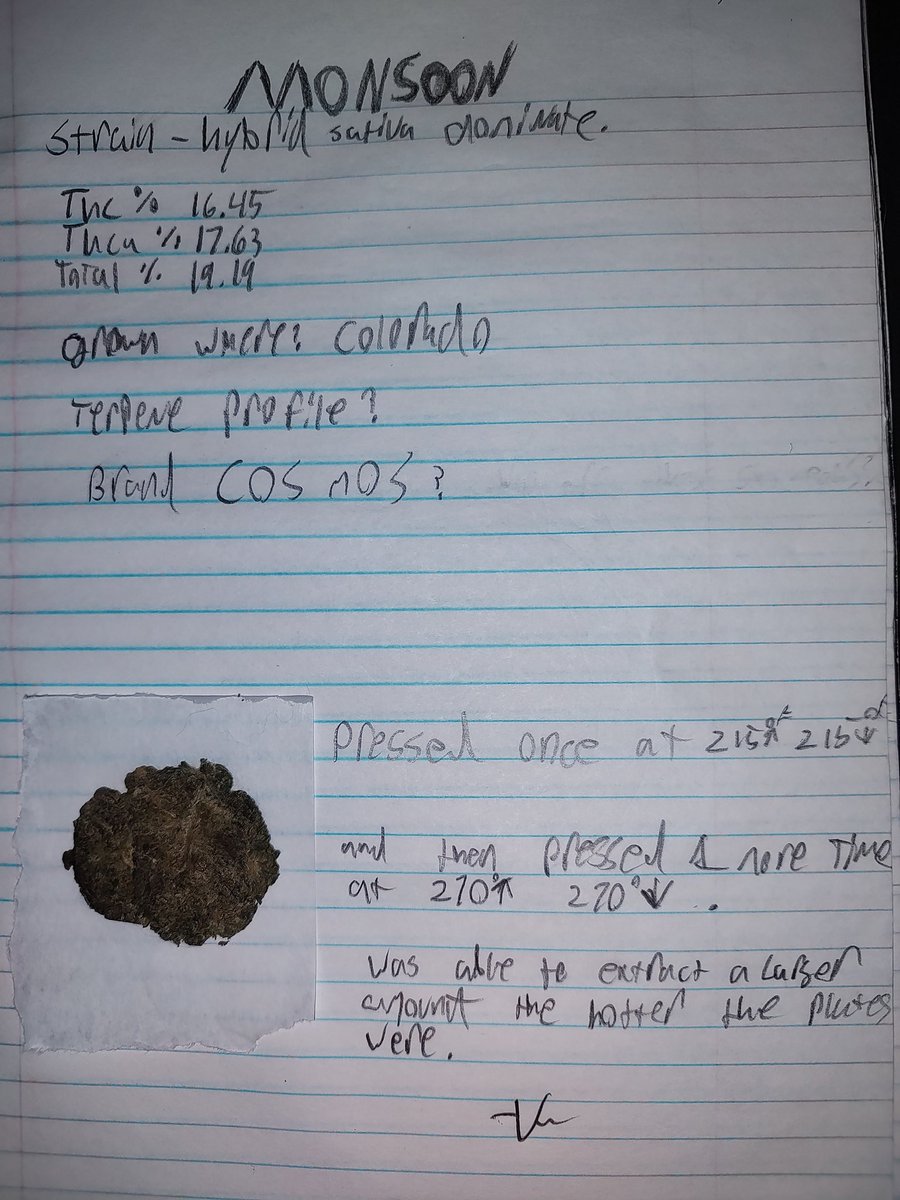 MONSOON
Strain - hybrid sativa dominate.
THC % 16.45
THCa % 17.63
Total % 19.19
grown where? Colorado
Terpene profile?
Brand COSMOS?
Pressed once at 215°↑ 215°↓
and then pressed 1 more Time
at 270°↑ 270°↓ .
Was able to extract a larger
amount the hotter the plates
were.